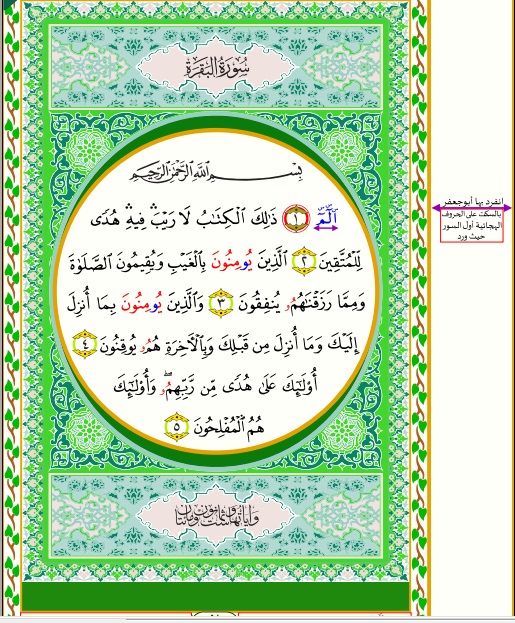 سُورَةُ الْبَقَرَةِ
بِسْمِ اللَّهِ الرَّحْمَٰنِ الرَّحِيمِ
الٓمٓ ١ ذَٰلِكَ الْكِتَٰبُ لَا رَيْبَ ۛ فِيهِ ۛ هُدًى
لِّلْمُتَّقِينَ ٢ الَّذِينَ يُومِنُونَ بِالْغَيْبِ وَيُقِيمُونَ الصَّلَوٰةَ
وَمِمَّا رَزَقْنَٰهُمُۥ يُنفِقُونَ ٣ وَالَّذِينَ يُومِنُونَ بِمَا أُنزِلَ
إِلَيْكَ وَمَا أُنزِلَ مِن قَبْلِكَ وَبِالْأَخِرَةِ هُمُۥ يُوقِنُونَ ٤
أُوْلَٰٓئِكَ عَلَىٰ هُدًى مِّن رَّبِّهِمُۥ ۖ وَأُوْلَٰٓئِكَ
هُمُ الْمُفْلِحُونَ ٥
وَآيَاتُهَا مِائَتَانِ وَسِتٌّ وَثَمَانُونَ
انفرد بها أبوجعفر
بالسكت على الحروف
الهجائية أول السور
حيث ورد